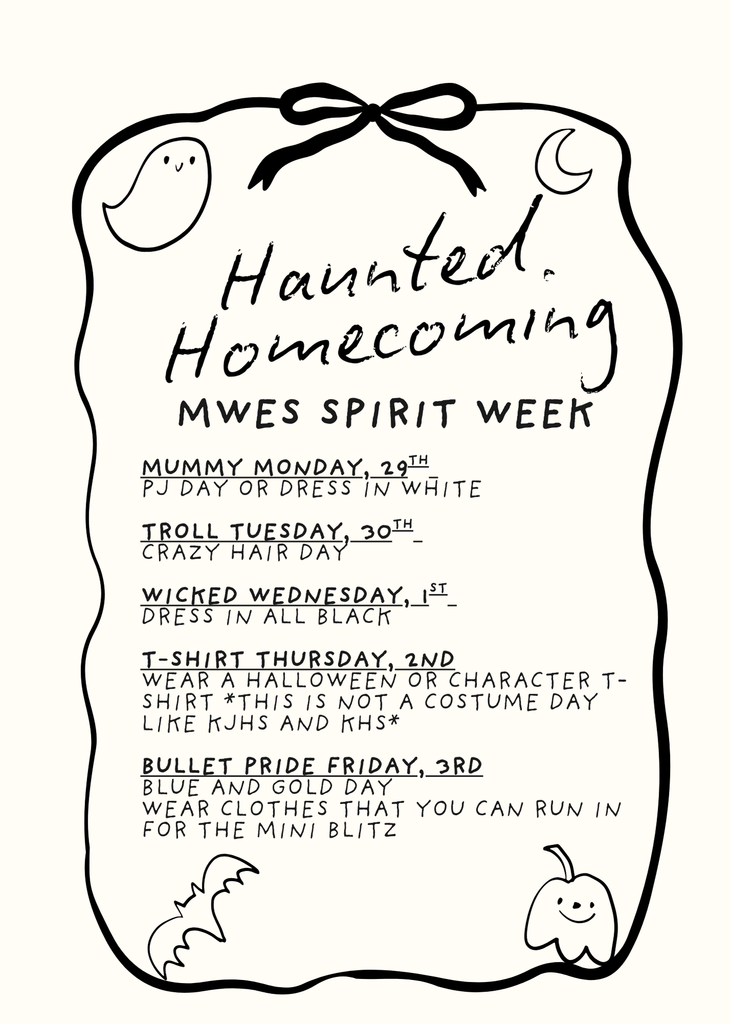 Haunted.
Homecoming
MWES SPIRIT WEEK
MUMMY MONDAY, 29TH
PJ DAY OR DRESS IN WHITE
TROLL TUESDAY, 30TH
CRAZY HAIR DAY
WICKED WEDNESDAY, 1ST
DRESS IN ALL BLACK
T-SHIRT THURSDAY, 2ND
WEAR A HALLOWEEN OR CHARACTER T-
SHIRT *THIS IS NOT A COSTUME DAY
LIKE KJHS AND KHS*
BULLET PRIDE FRIDAY, 3RD
BLUE AND GOLD DAY
WEAR CLOTHES THAT YOU CAN RUN IN
FOR THE MINI BLITZ